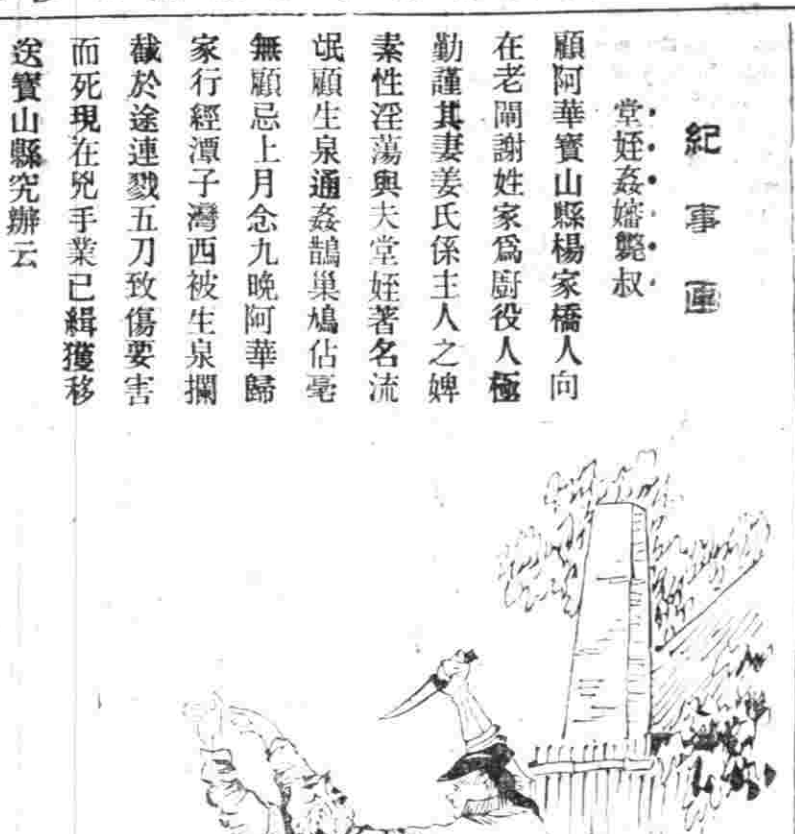 紀事畫
堂姪姦嬸斃叔
顧阿華寶山縣楊家橋人向
在老閘謝姓家爲廚役人極
勤謹其妻姜氏係主人之婢
素性淫蕩與夫堂姪著名流
氓顧生泉通姦鵲巢鳩佔毫
無顧忌上月念九晚阿華歸
家行經潭子灣西被生泉攔
截於途連戮五刀致傷要害
而死現在兇手業已緝獲移
送寶山縣究辦云